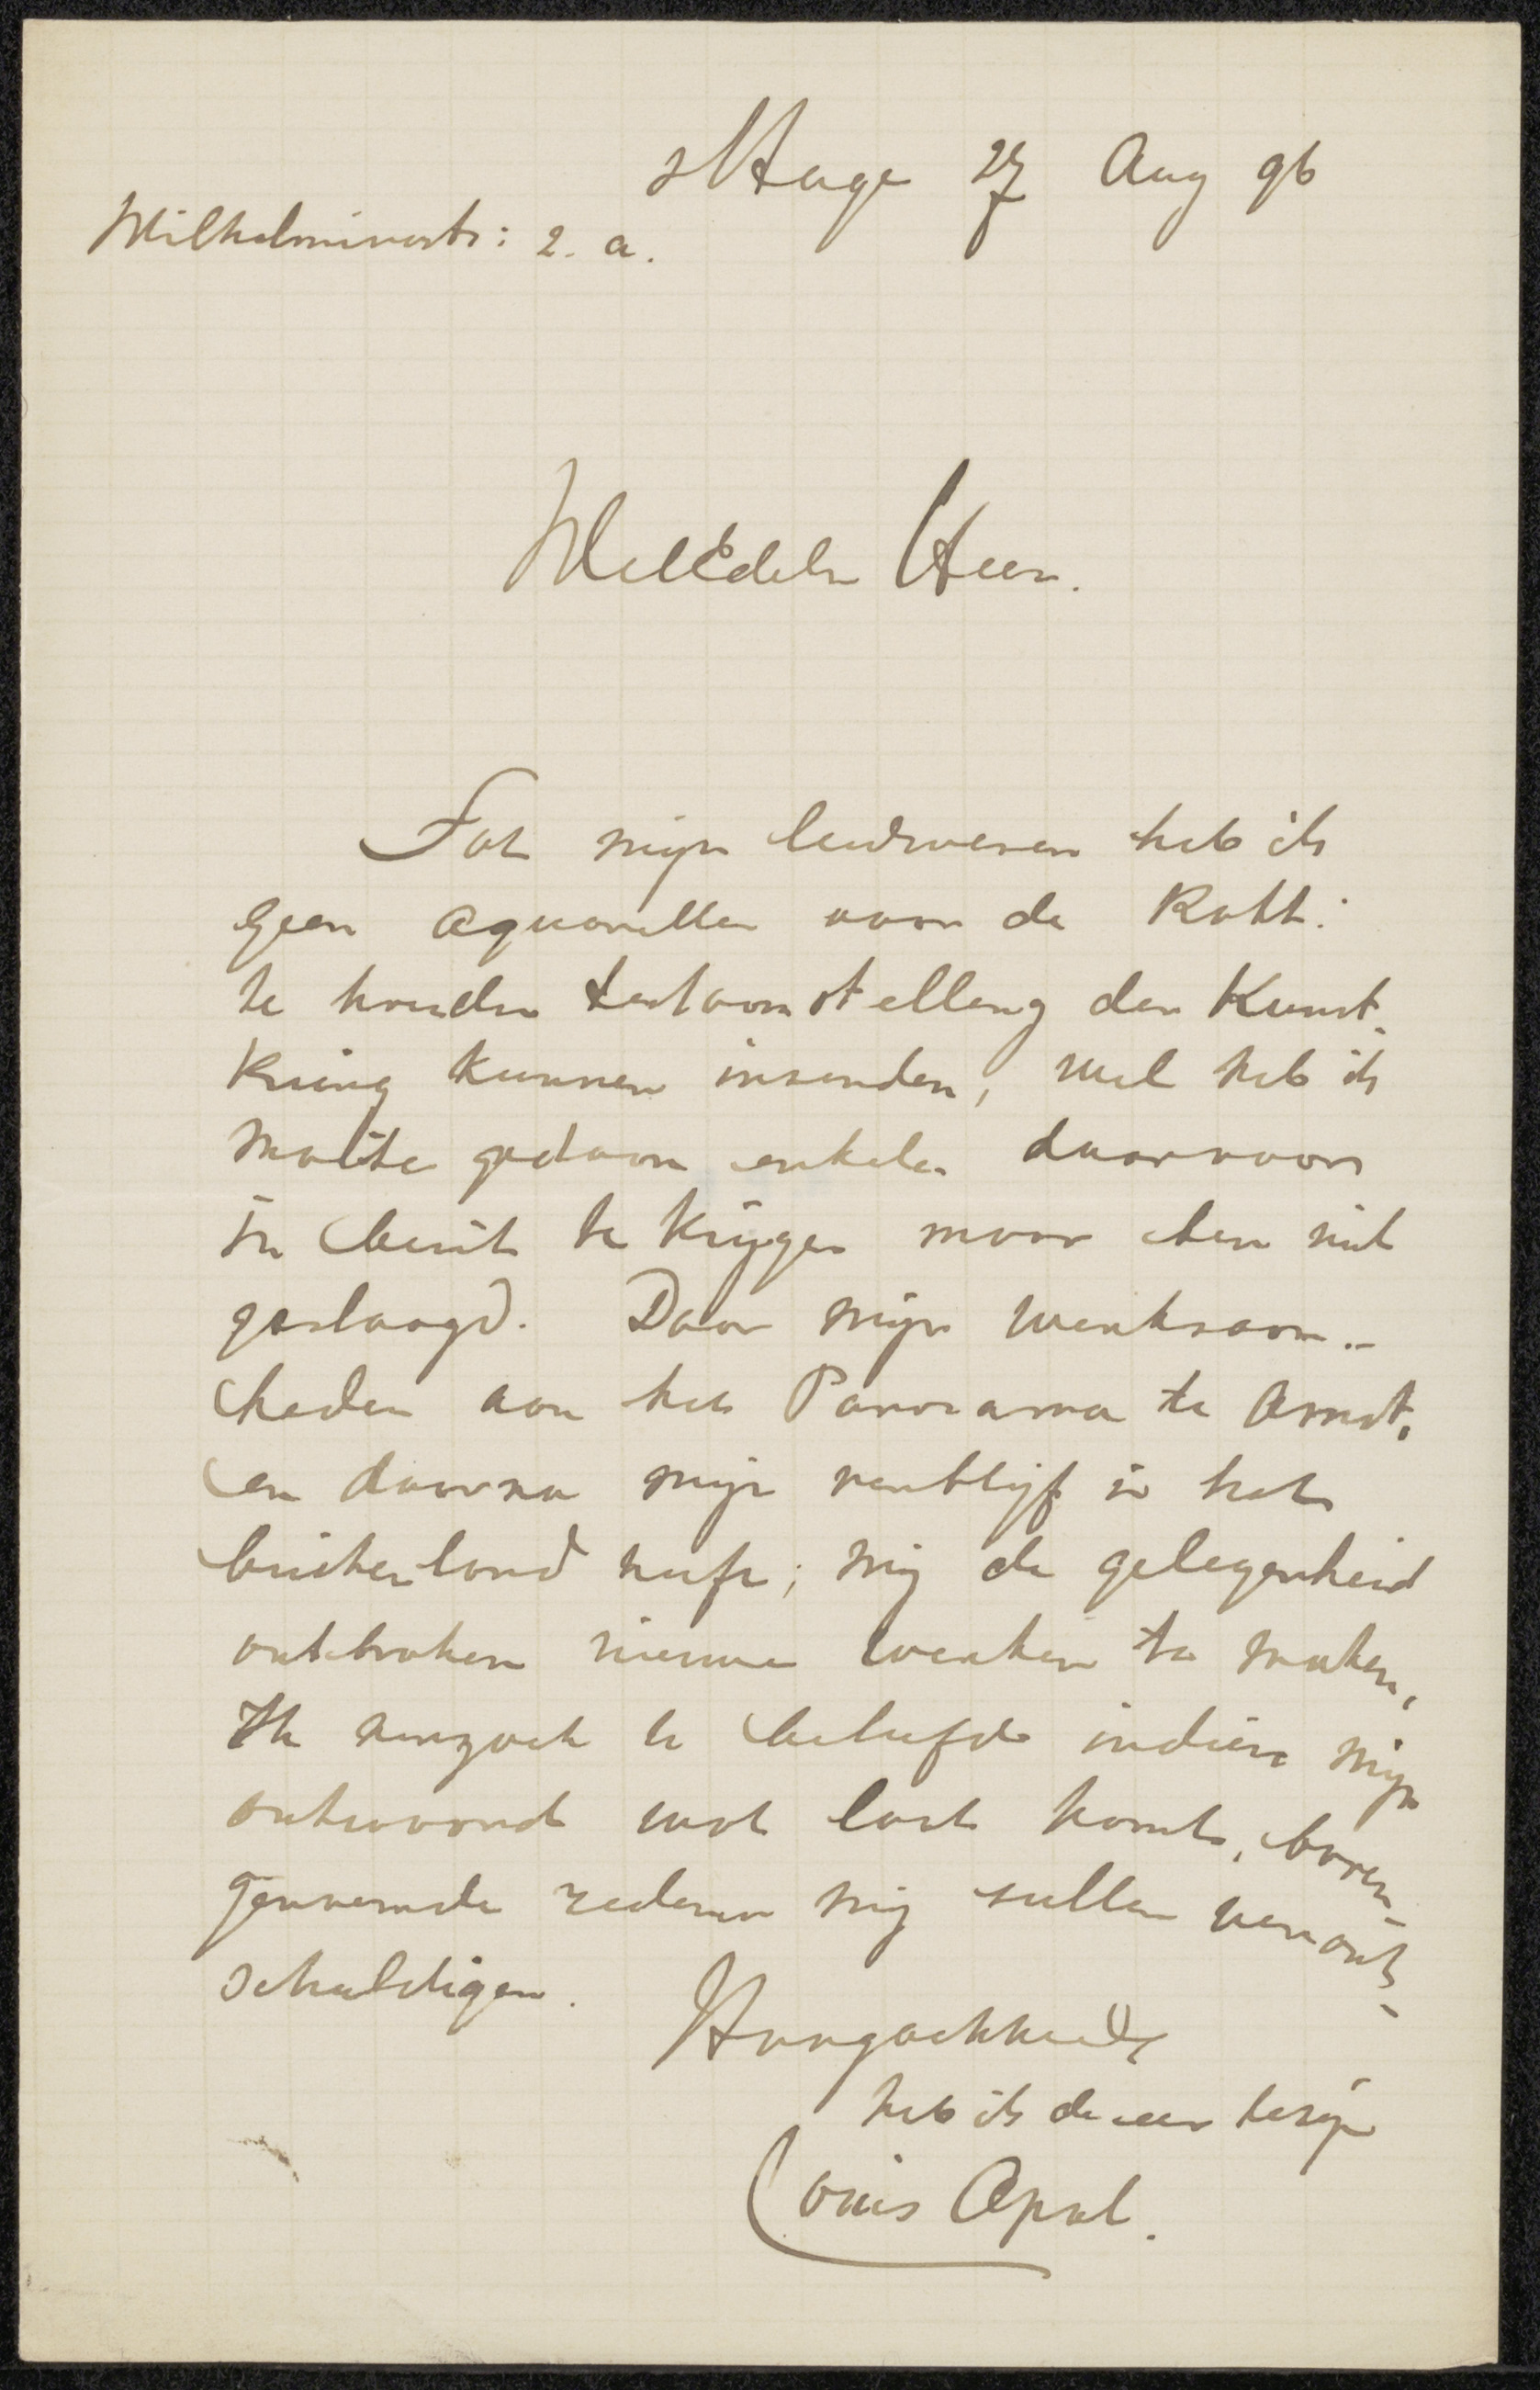 sHage 27 Aug 96
Wilhelminastr: 2. a.
WelEdele Heer.
Tot mijn leedwezen heb ik
geen aquarellen voor de Rott:
te houden tentoonstelling der Kunst-
kring kunnen inzenden, wel heb ik
moeite gedaan enkele daarvoor
in bezit te krijgen maar ben niet
geslaagd. Daar mijn werkzaam-
heden aan het Panorama te Amst,
en daarna mijn verblijf in het
buitenland mij de gelegenheid
ontbroken nieuwe werken te maken,
Ik verzoek u beleefd indien mijn
antwoord wat laat komt, boven-
genoemde redenen mij zullen veront-
schuldigen.
Hoogachtend
heb ik de eer te zijn
Louis Apol.